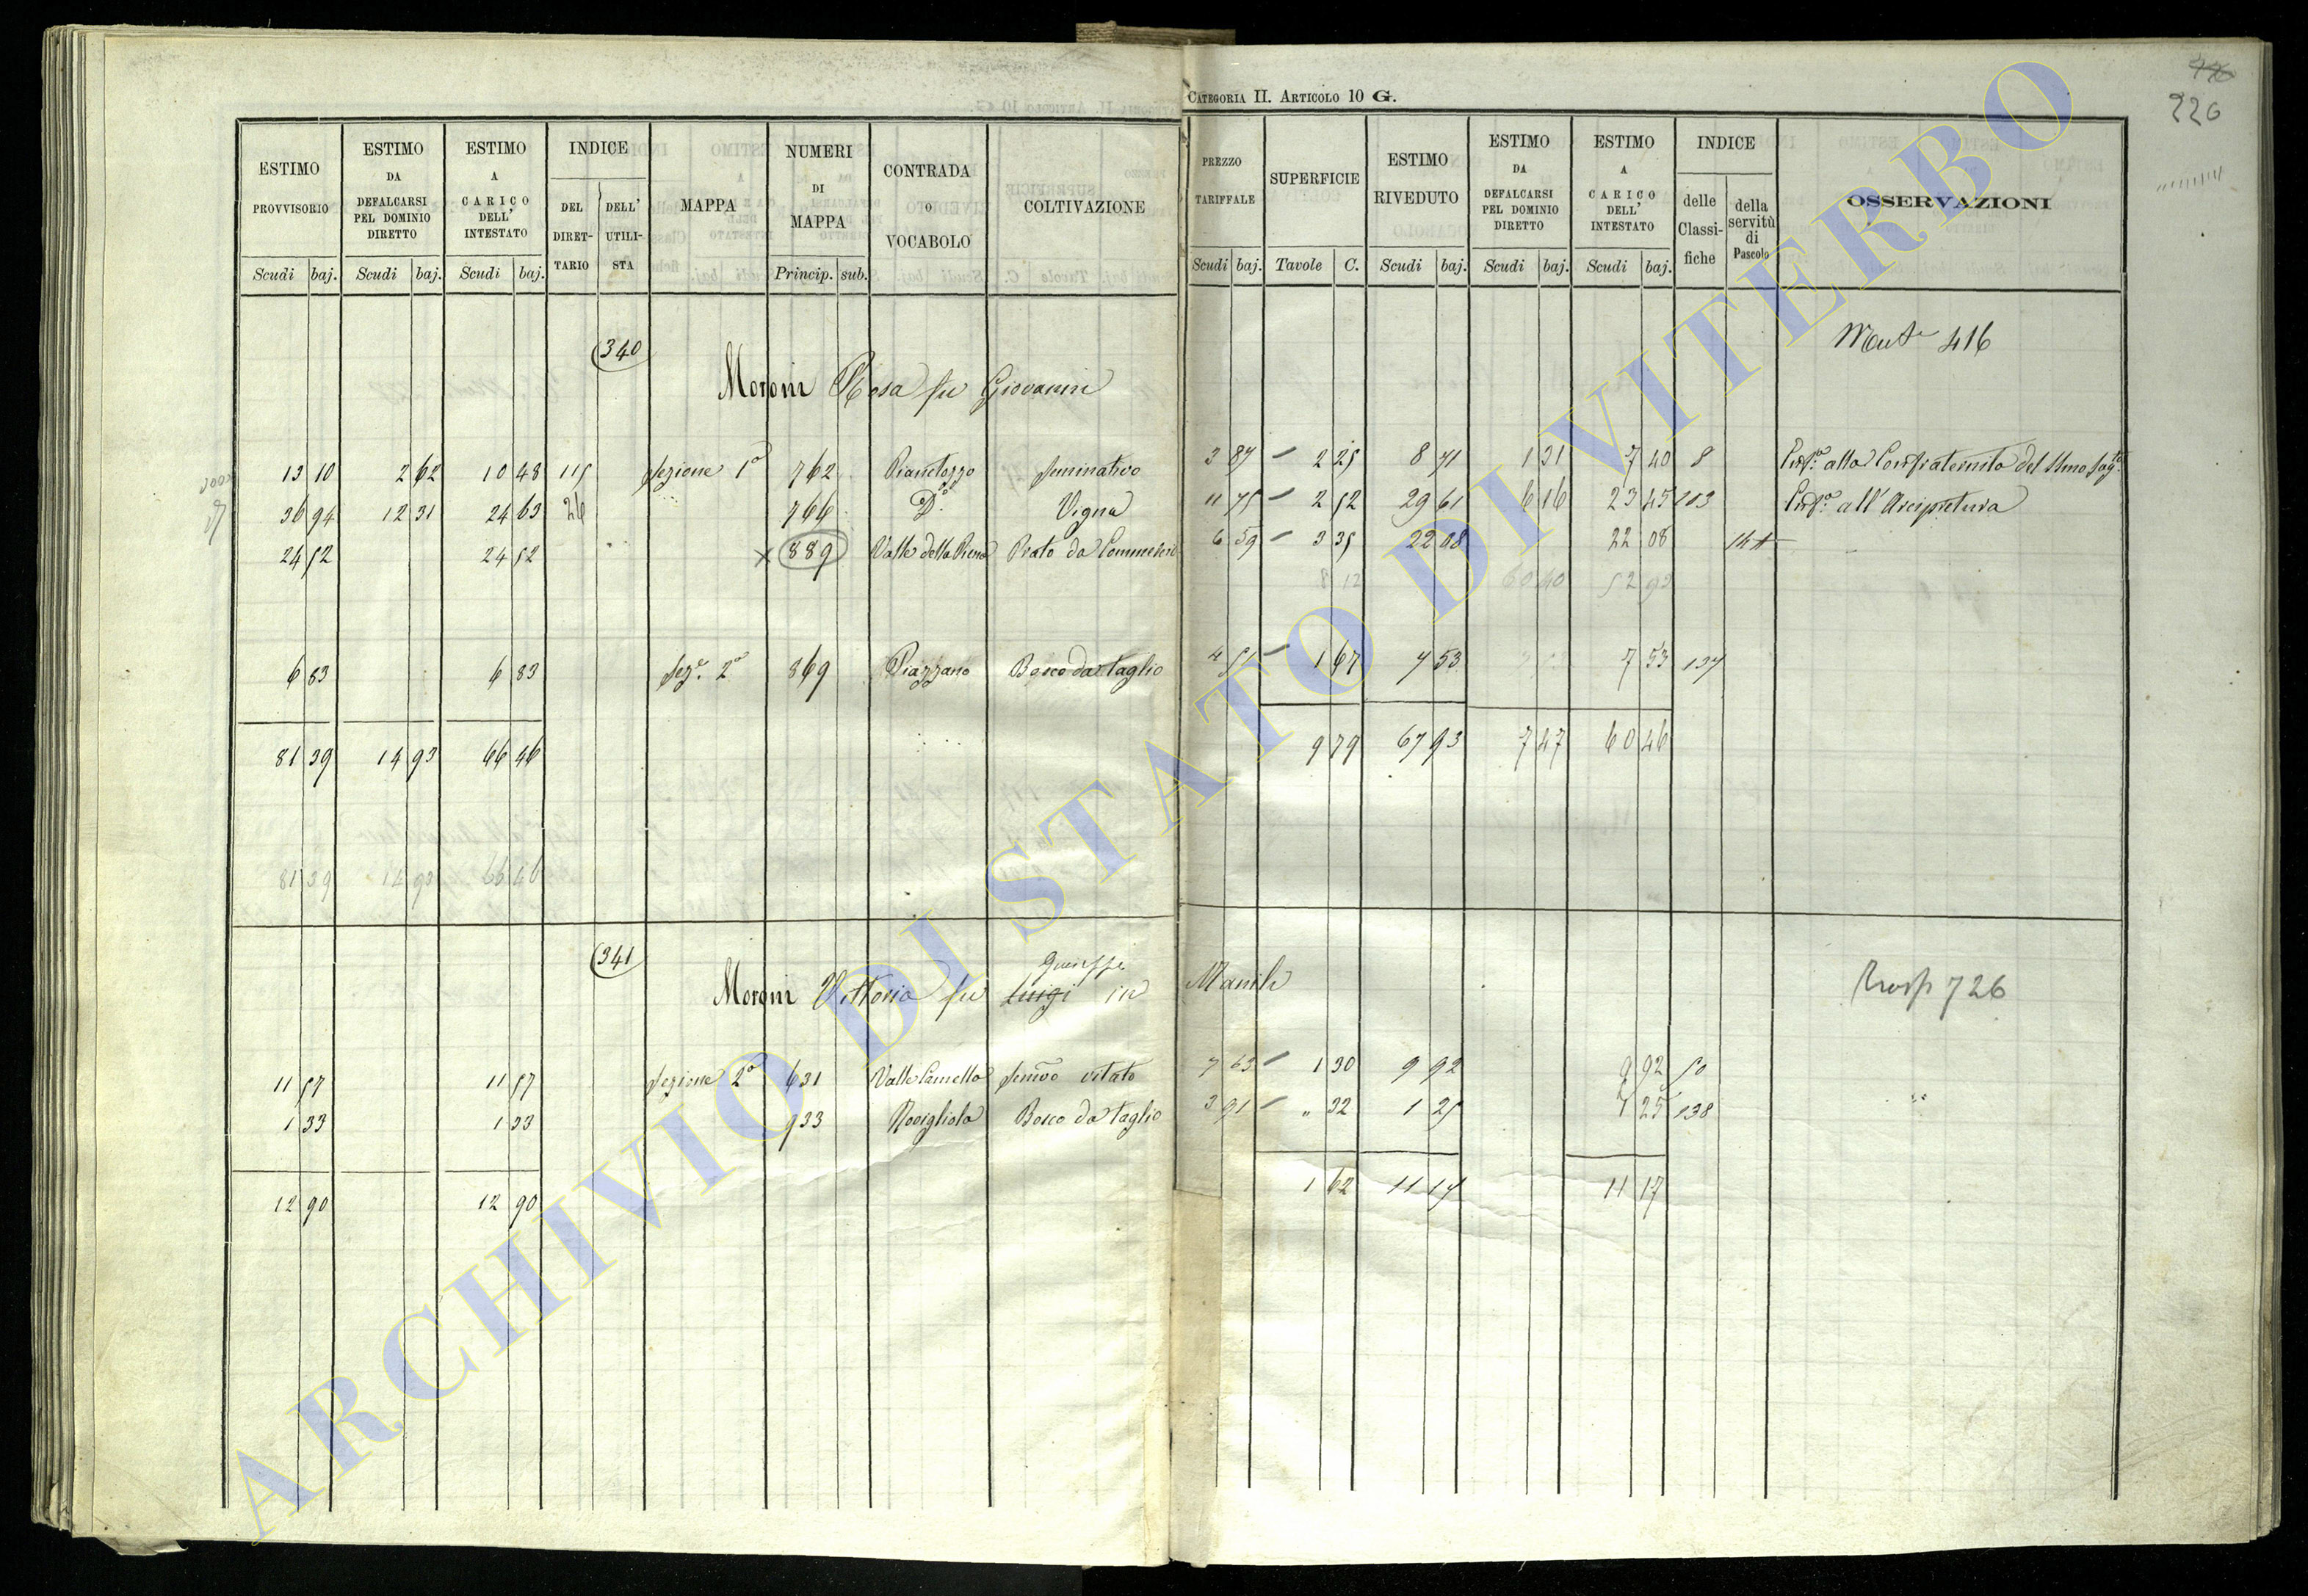 CATEGORIA II. ARTICOLO 10 G.
226
ESTIMO PROVVISORIO Scudi baj.
ESTIMO DA DEFALCARSI PEL DOMINIO DIRETTO Scudi baj.
ESTIMO A CARICO DELL' INTESTATO Scudi baj.
INDICE DEL DIRETTARIO DELL' UTILISTA
MAPPA
NUMERI DI MAPPA Princip. sub.
CONTRADA O VOCABOLO
COLTIVAZIONE
PREZZO TARIFFALE Scudi baj.
SUPERFICIE Tavole C.
ESTIMO RIVEDUTO Scudi baj.
ESTIMO DA DEFALCARSI PEL DOMINIO DIRETTO Scudi baj.
ESTIMO A CARICO DELL' INTESTATO Scudi baj.
INDICE delle Classifiche della servitù di Pascolo
OSSERVAZIONI
340
416
Moroni Rosa fu Giovanni
13 10 2 62 10 48 115 Sezione 1a 762 Pianetozzo Seminativo 3 87 2 25 8 71 1 31 7 40 8 alla Confraternita del
36 94 12 31 24 63 26 766 Do Vigna 11 75 2 52 29 61 6 16 23 45 113 all'Arcipretura
24 52 24 52 x 889 Valle della Prato da 6 59 3 35 22 08 22 08
8 12 60 40 52 93
6 83 6 83 Seze 2a 869 Piazzano Bosco da taglio 4 51 1 67 7 53 7 53 137
81 39 14 93 66 46 9 79 67 93 7 47 60 46
81 39 14 93 66 46
341
Giuseppe
Moroni Vittoria fu Luigi in Manili
726
11 57 11 57 Sezione 2a 631 Valle Camella vitato 7 63 1 30 9 92 9 92 50
1 33 1 33 933 Rovigliola Bosco da taglio 3 91 " 32 1 25 1 25 138
12 90 12 90 1 62 11 17 11 17
ARCHIVIO DI STATO DI VITERBO